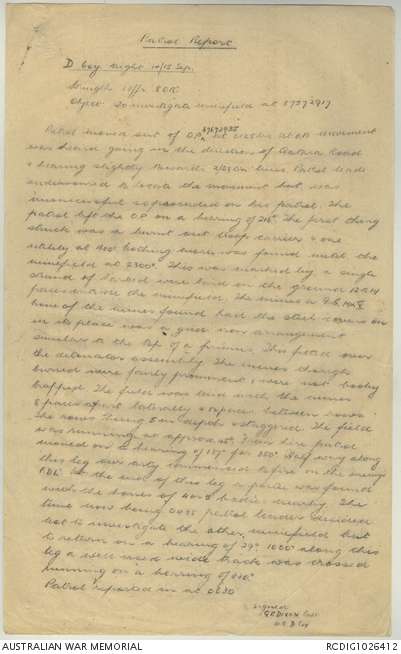 Patrol Report
D Coy night 14/15 Sep.
Strength 1 offr 8 OR
Object To investigate minefield at 87572917
Patrol moved out of O.P. at at O.P. movement
was heard going in the direction of Road
& bearing slightly towards 2/28 Bn lines. Patrol leader
endeavoured to locate the movement but was
unsuccessful so proceeded on his patrol. The
patrol left the O.P. on a bearing of The first thing
struck was a burnt out troop carrier & one
utility at 900ˣ nothing more was found until the
minefield at 2300ˣ. This was marked by a single
strand of barbed wire laid on the ground
paces outside the minefield. The mines
None of the mines found had the steel covers on
in its place was a iron arrangement
similar to the top of a primus. This fitted over
the detonator assembly. The mines though
buried were fairly prominent & were not booby
trapped. The field was laid with the mines
6 paces apart laterally & 4 paces between rows.
The rows being in depth & staggered. The field
was running at approx From here patrol
moved on a bearing of 117° for 350ˣ Half way along
this leg our arty commenced to fire on the enemy
F.D.Ls. At the end of this leg a was found
with the bones of bodies nearby. The
time now being 0035 patrol leader decided
not to investigate the other minefield but
to return on a bearing of 29° 1000ˣ along this
leg a well used wide track was crossed
running on a bearing of
Patrol reported in at
Signed
G.R. Dixon Capt
O.C. D Coy
AUSTRALIAN WAR MEMORIAL
RCDIG1026412